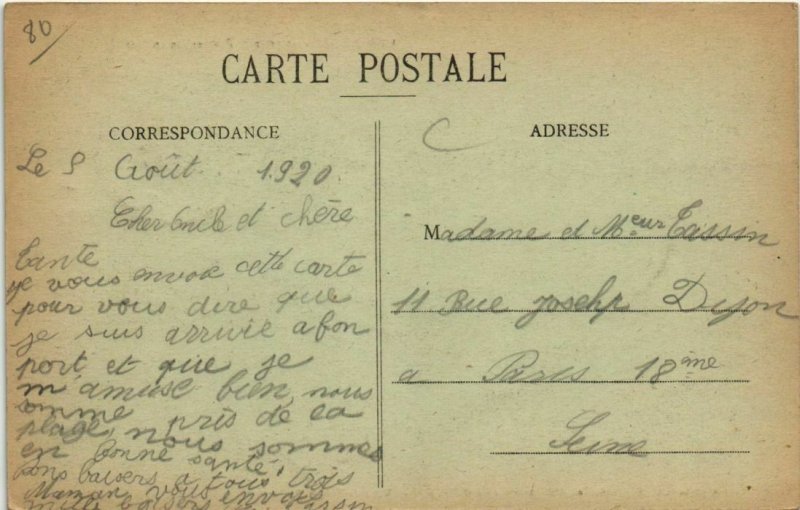 80
CARTE POSTALE
CORRESPONDANCE
Le 5 Août 1920.
Cher Oncle et chère
tante
je vous envoie cette carte
pour vous dire que
je suis arrivie a bon
port et que je
m'amuse bien, nous
somme près de la
plage, nous sommes
en bonne santé,
bons baisers à tous trois
Maman vous envoies
mille baisers Tassin
ADRESSE
Madame et Meur Tassin
11 Rue Joseph Dijon
a Paris 18ème
Seine